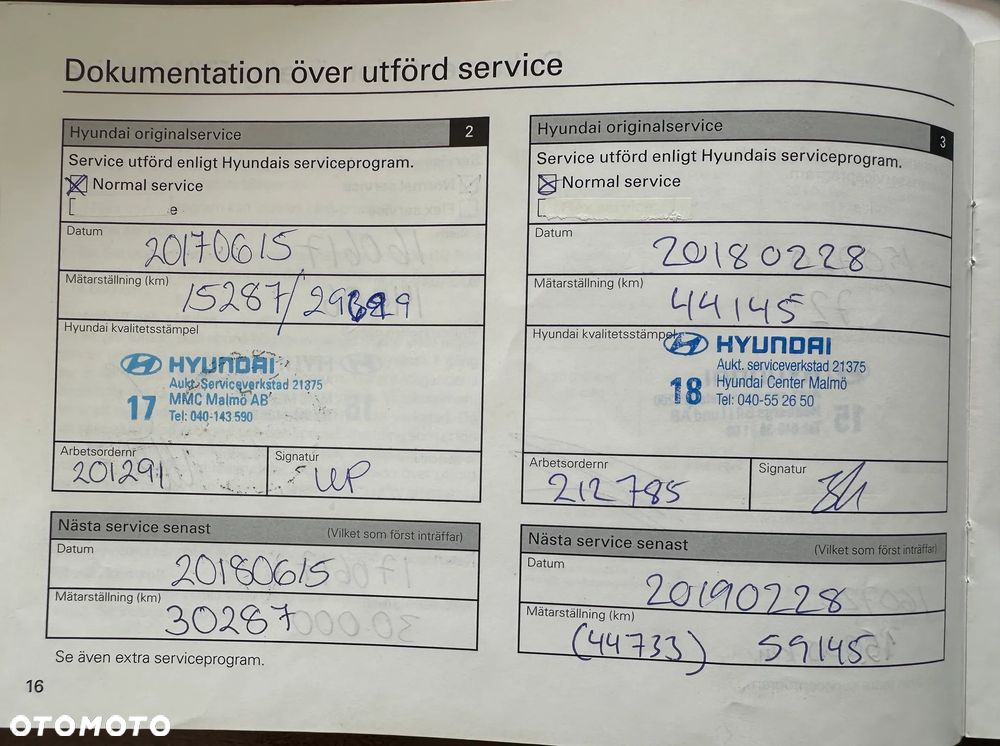 Dokumentation över utförd service
Hyundai originalservice 2
Service utförd enligt Hyundais serviceprogram.
Normal service
e
Datum
20170615
Mätarställning (km)
15287/29
Hyundai kvalitetsstämpel
HYUNDAI
Aukt. Serviceverkstad 21375
17 MMC Malmö AB
Tel: 040-143 590
Arbetsordernr
201291
Signatur
UP
Nästa service senast (Vilket som först inträffar)
Datum
20180615
Mätarställning (km)
30287
Se även extra serviceprogram.
16
Hyundai originalservice 3
Service utförd enligt Hyundais serviceprogram.
Normal service
Datum
20180228
Mätarställning (km)
44145
Hyundai kvalitetsstämpel
HYUNDAI
Aukt. serviceverkstad 21375
18 Hyundai Center Malmö
Tel: 040-55 26 50
Arbetsordernr
212785
Signatur
Nästa service senast (Vilket som först inträffar)
Datum
20190228
Mätarställning (km)
(44733) 59145
OTOMOTO